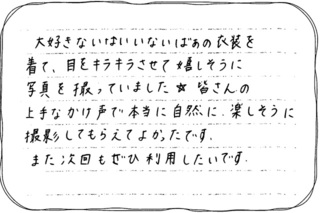 大好きないないいないばぁの衣装を
着て、目をキラキラさせて嬉しそうに
写真を撮っていました☆ 皆さんの
上手なかけ声で本当に自然に、楽しそうに
撮影してもらえてよかったです。
また次回もぜひ利用したいです。